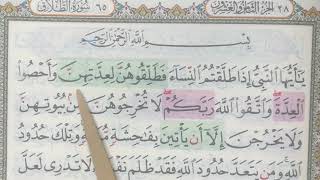 ٢٨ الجزء الثامن والعشرون سورة الطلاق ٦٥
بِسْمِ اللَّهِ الرَّحْمَٰنِ الرَّحِيمِ
يَٰٓأَيُّهَا ٱلنَّبِىُّ إِذَا طَلَّقْتُمُ ٱلنِّسَآءَ فَطَلِّقُوهُنَّ لِعِدَّتِهِنَّ وَأَحْصُوا۟
ٱلْعِدَّةَ وَٱتَّقُوا۟ ٱللَّهَ رَبَّكُمْ لَا تُخْرِجُوهُنَّ مِنۢ بُيُوتِهِنَّ
وَلَا يَخْرُجْنَ إِلَّآ أَن يَأْتِينَ بِفَٰحِشَةٍ مُّبَيِّنَةٍ وَتِلْكَ حُدُودُ
ٱللَّهِ وَمَن يَتَعَدَّ حُدُودَ ٱللَّهِ فَقَدْ ظَلَمَ نَفْسَهُۥ لَا تَدْرِى لَعَلَّ